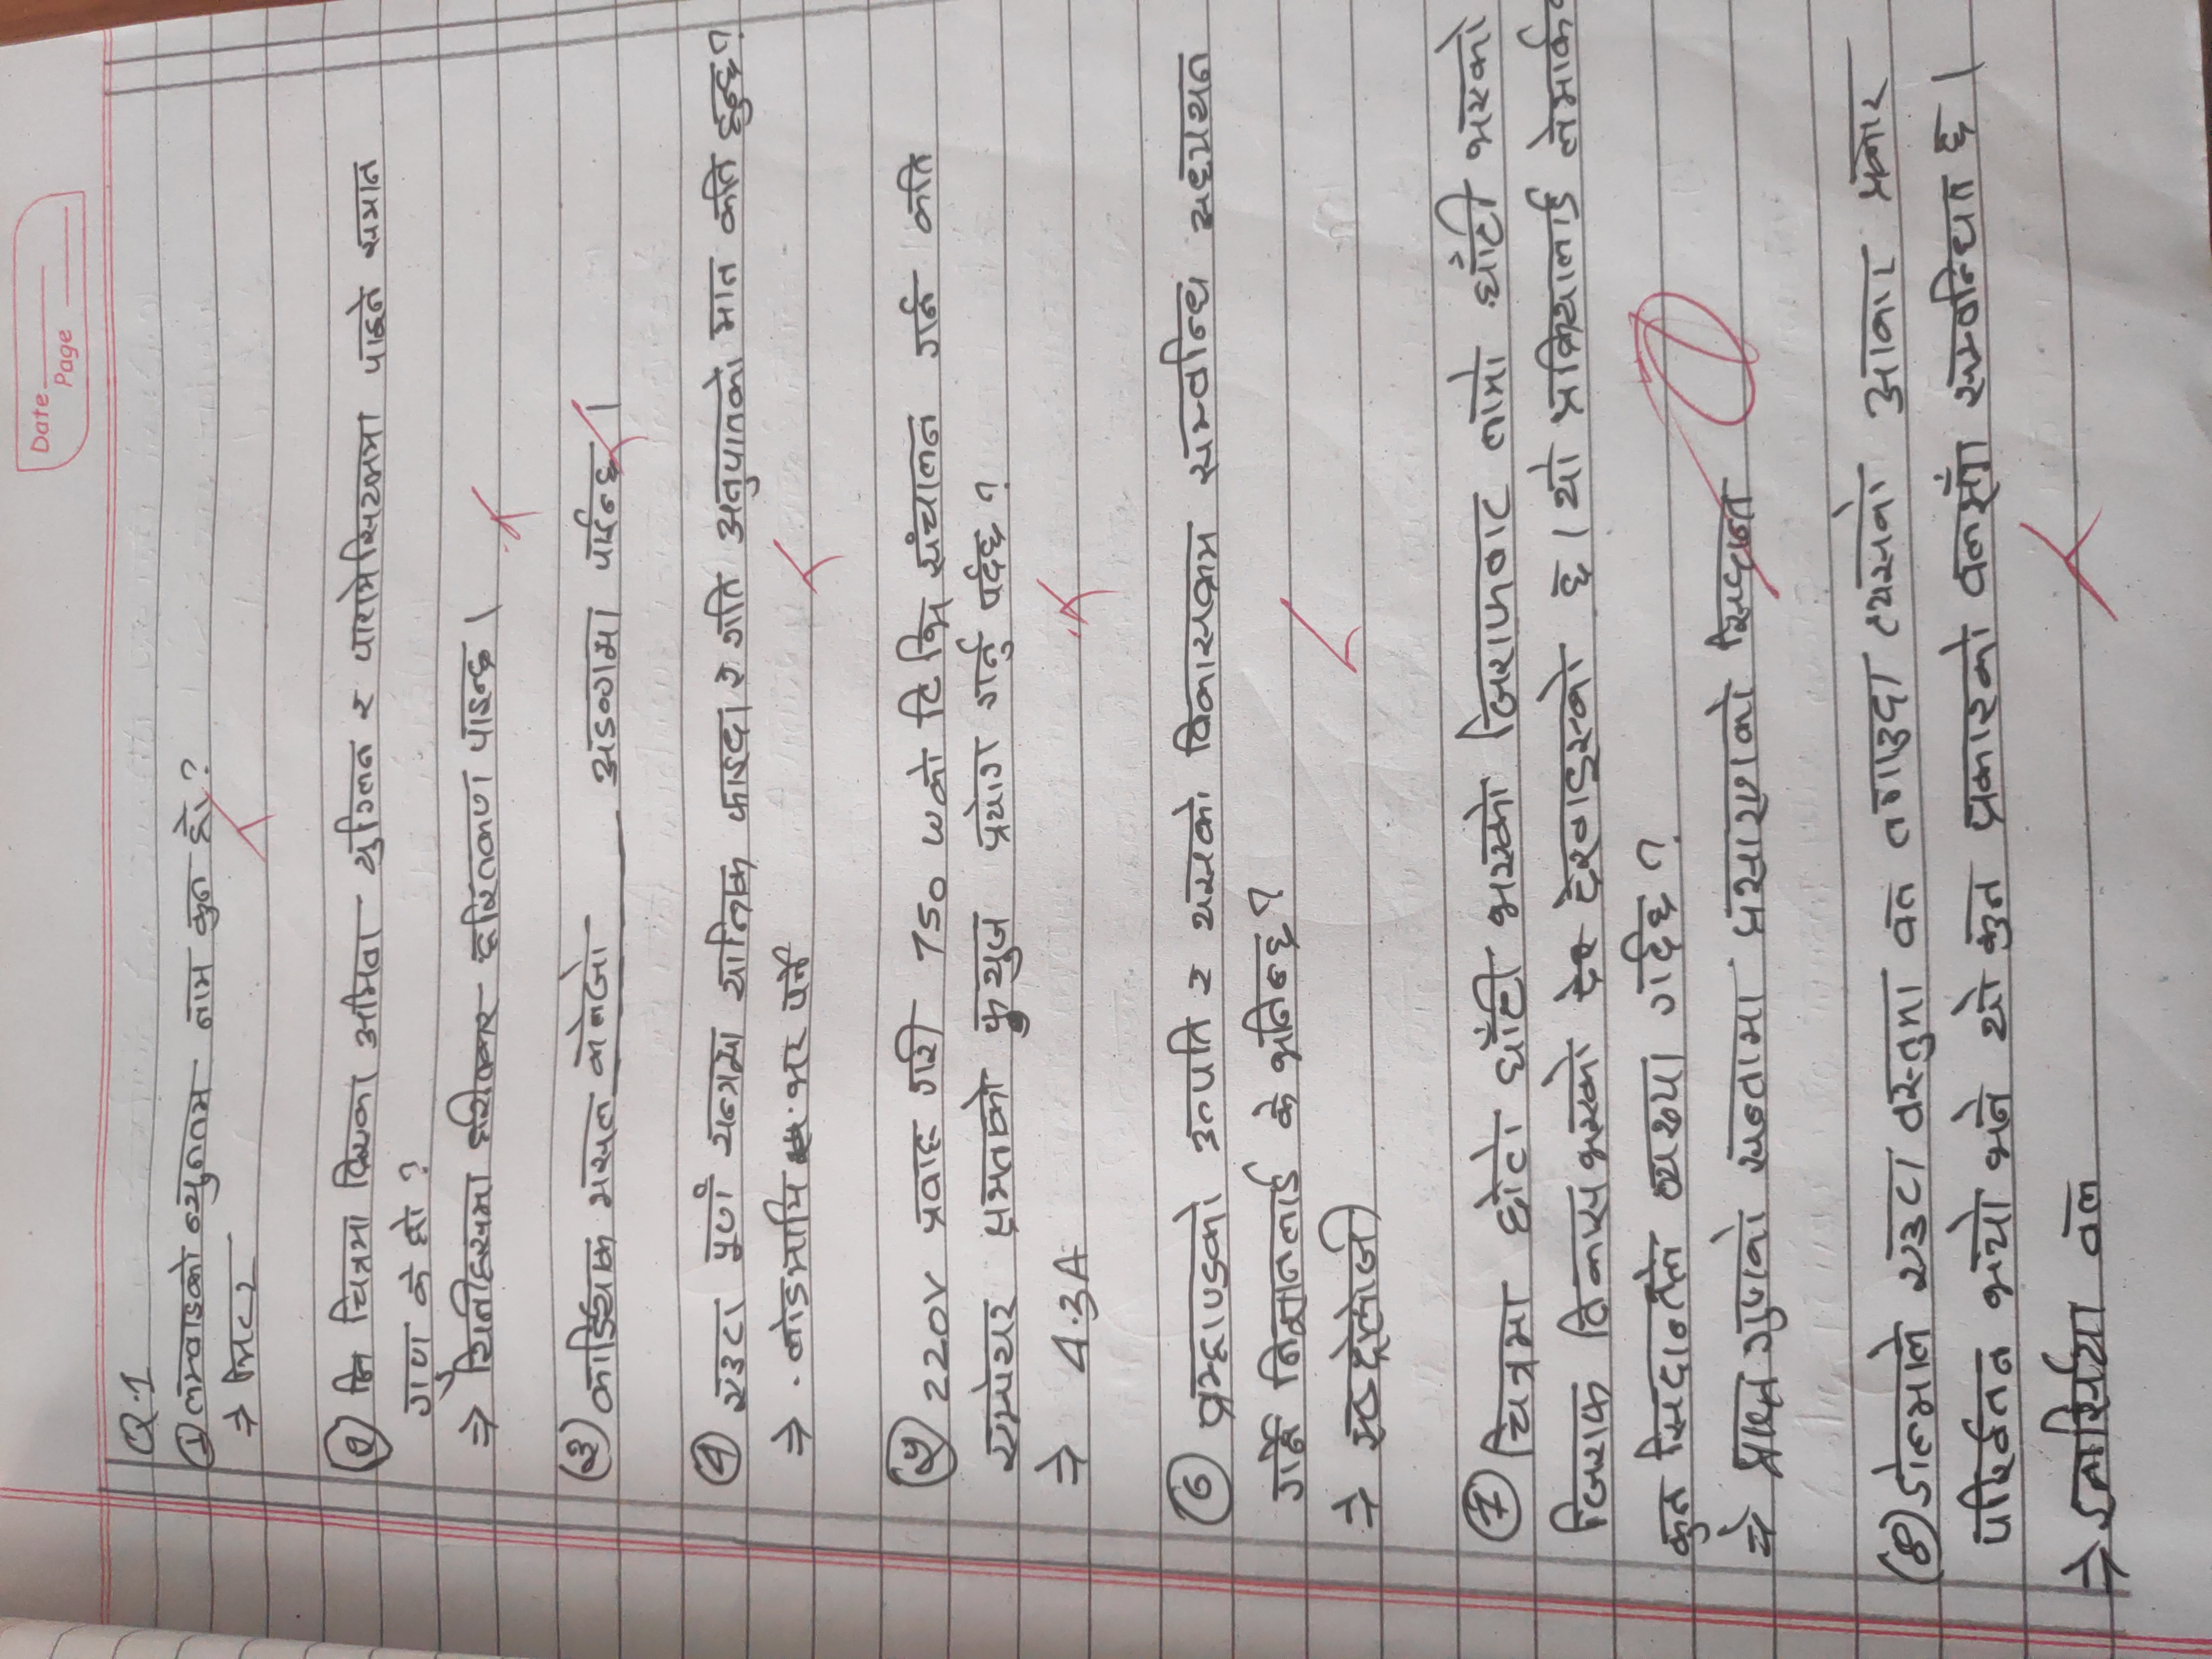 Date
Page
Q.1
① लम्वाइको न्युनतम नाम कुन हो?
⇒ मिटर
② चित्रमा दिएका अमिवा युग्लिन र पारामेसियममा पाइने समान
गुण के हो?
⇒ यिनीहरूमा हरितकण पाइन्छ।
(३) कार्डियाक मसल कलेजो अङगमा पाईन्छ।
④ एउटा पूर्ण यन्त्रमा यान्त्रिक फाइदा र गति अनुपातको मान कति हुन्छ?
⇒ लोडमाथि भर पर्ने
⑤ 220V प्रवाह गरी 750 W को टि भि संचालन गर्न कति
एम्पियर क्षमताको फ्युज प्रयोग गर्नु पर्दछ?
⇒ 4.3A
⑥ व्रम्हाण्डको उत्पति र यसको विकासक्रम सम्वन्धि अध्ययन
गर्ने विज्ञानलाई के भनिन्छ?
⇒ एस्ट्रोलोजी
⑦ चित्रमा छोटो घाँटी भएको जिराफबाट लामो घाँटी भएको
जिराफ विकास भएको देखाइएको छ। यो प्रक्रियालाई लेमार्कक
कुन सिदान्तले व्यख्या गर्दछ?
⇒ प्राप्त गुणको सन्तामा प्रसारणको सिद्धान्त
1
(8) डोल्माले एउटा वस्तुमा वल लगाउदा त्यसको आकार प्रकार
परिर्वतन भयो भने यो कुन प्रकारको वलसँग सम्वन्धित छ।
⇒ इनर्सिया वल